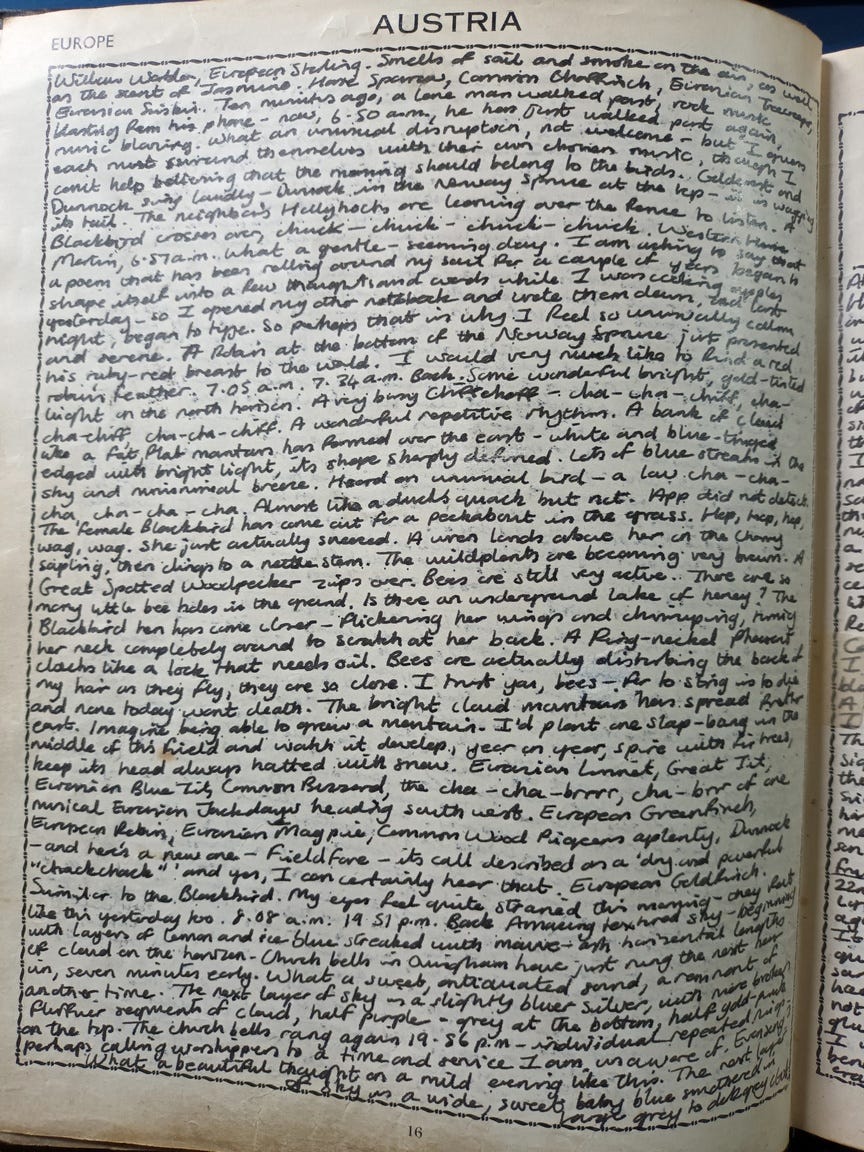 EUROPE
AUSTRIA
Willow Warbler, European Starling. Smells of soil and smoke on the air, as well
as the scent of Jasmine. House Sparrow, Common Chaffinch, Eurasian Treecreeper,
Eurasian Siskin. Ten minutes ago, a lone man walked past, rock music
blasting from his phone - now, 6.50 a.m., he has just walked past again,
music blaring. What an unusual disruption, not welcome - but I guess
each must surround themselves with their own chosen music, though I
can't help believing that the morning should belong to the birds. Goldcrest and
Dunnock sing loudly - Dunnock in the Norway Spruce at the top - is wagging
its tail. The neighbour's Hollyhocks are leaning over the fence to listen. A
Blackbird crosses over, chuck - chuck - chuck - chuck. Western House
Martin, 6.57 a.m. What a gentle - seeming day. I am aching to say that
a poem that has been rolling around my soul for a couple of years began to
shape itself into a few thoughts and words while I was collecting apples
yesterday - so I opened my other notebook and wrote them down, and last
night, began to type. So perhaps that is why I feel so unusually calm
and serene. A Robin at the bottom of the Norway Spruce just presented
his ruby-red breast to the world. I would very much like to find a red
robin feather. 7.05 a.m. 7.34 a.m. Back. Some wonderful bright, gold-tinted
light on the north horizon. A very busy Chiffchaff - cha-cha-chiff, cha-
cha-chiff, cha-cha-chiff. A wonderful repetitive rhythm. A bank of cloud
like a fat, flat mountain has formed over the east - white and blue-tinged
edged with bright light, its shape sharply defined. Lots of blue streaks in the
sky and minimal breeze. Heard an unusual bird - a low cha-cha-
cha, cha-cha-cha. Almost like a duck's quack but not. App did not detect.
The female Blackbird has come out for a peckabout in the grass. Hop, hop, hop,
wag, wag. She just actually sneezed. A wren lands above her on the Cherry
sapling, then clings to a nettle stem. The wildplants are becoming very brown. A
Great Spotted Woodpecker zips over. Bees are still very active. There are so
many little bee holes in the ground. Is there an underground lake of honey? The
Blackbird hen has come closer - flickering her wings and chirruping, turning
her neck completely around to scratch at her back. A Ring-necked Pheasant
clocks like a lock that needs oil. Bees are actually disturbing the back of
my hair as they fly, they are so close. I trust you, bees - for to sting is to die
and none today want death. The bright cloud mountain has spread further
east. Imagine being able to grow a mountain. I'd plant one slap-bang in the
middle of this field and watch it develop, year on year, spire with fir trees,
keep its head always hatted with snow. Eurasian Linnet, Great Tit,
Eurasian Blue Tit, Common Buzzard, the cha-cha-brrrr, cha-brr of one
musical Eurasian Jackdaw heading south west. European Greenfinch,
European Robin, Eurasian Magpie, Common Wood Pigeons aplenty, Dunnock
- and here's a new one - Fieldfare - its call described as a 'dry and powerful
"chackchack"' and yes, I can certainly hear that. European Goldfinch.
Similar to the Blackbird. My eyes feel quite strained this morning - they felt
like this yesterday too. 8.08 a.m. 19.51 p.m. Back. Amazing textured sky - beginning
with layers of lemon and ice blue streaked with mauve - ash horizontal lengths
of cloud on the horizon. Church bells in have just rung the next hour
in, seven minutes early. What a sweet, antiquated sound, a remnant of
another time. The next layer of sky is a slightly bluer silver, with more broken
fluffier segments of cloud, half purple - grey at the bottom, half gold-pink
on the top. The church bells rang again 19.56 p.m - individual repeated rings -
perhaps calling worshippers to a time and service I am unaware of. Evensong?
What a beautiful thought on a mild evening like this. The next layer
of sky is a wide, sweet, baby blue smothered in
large grey to dark grey clouds
16